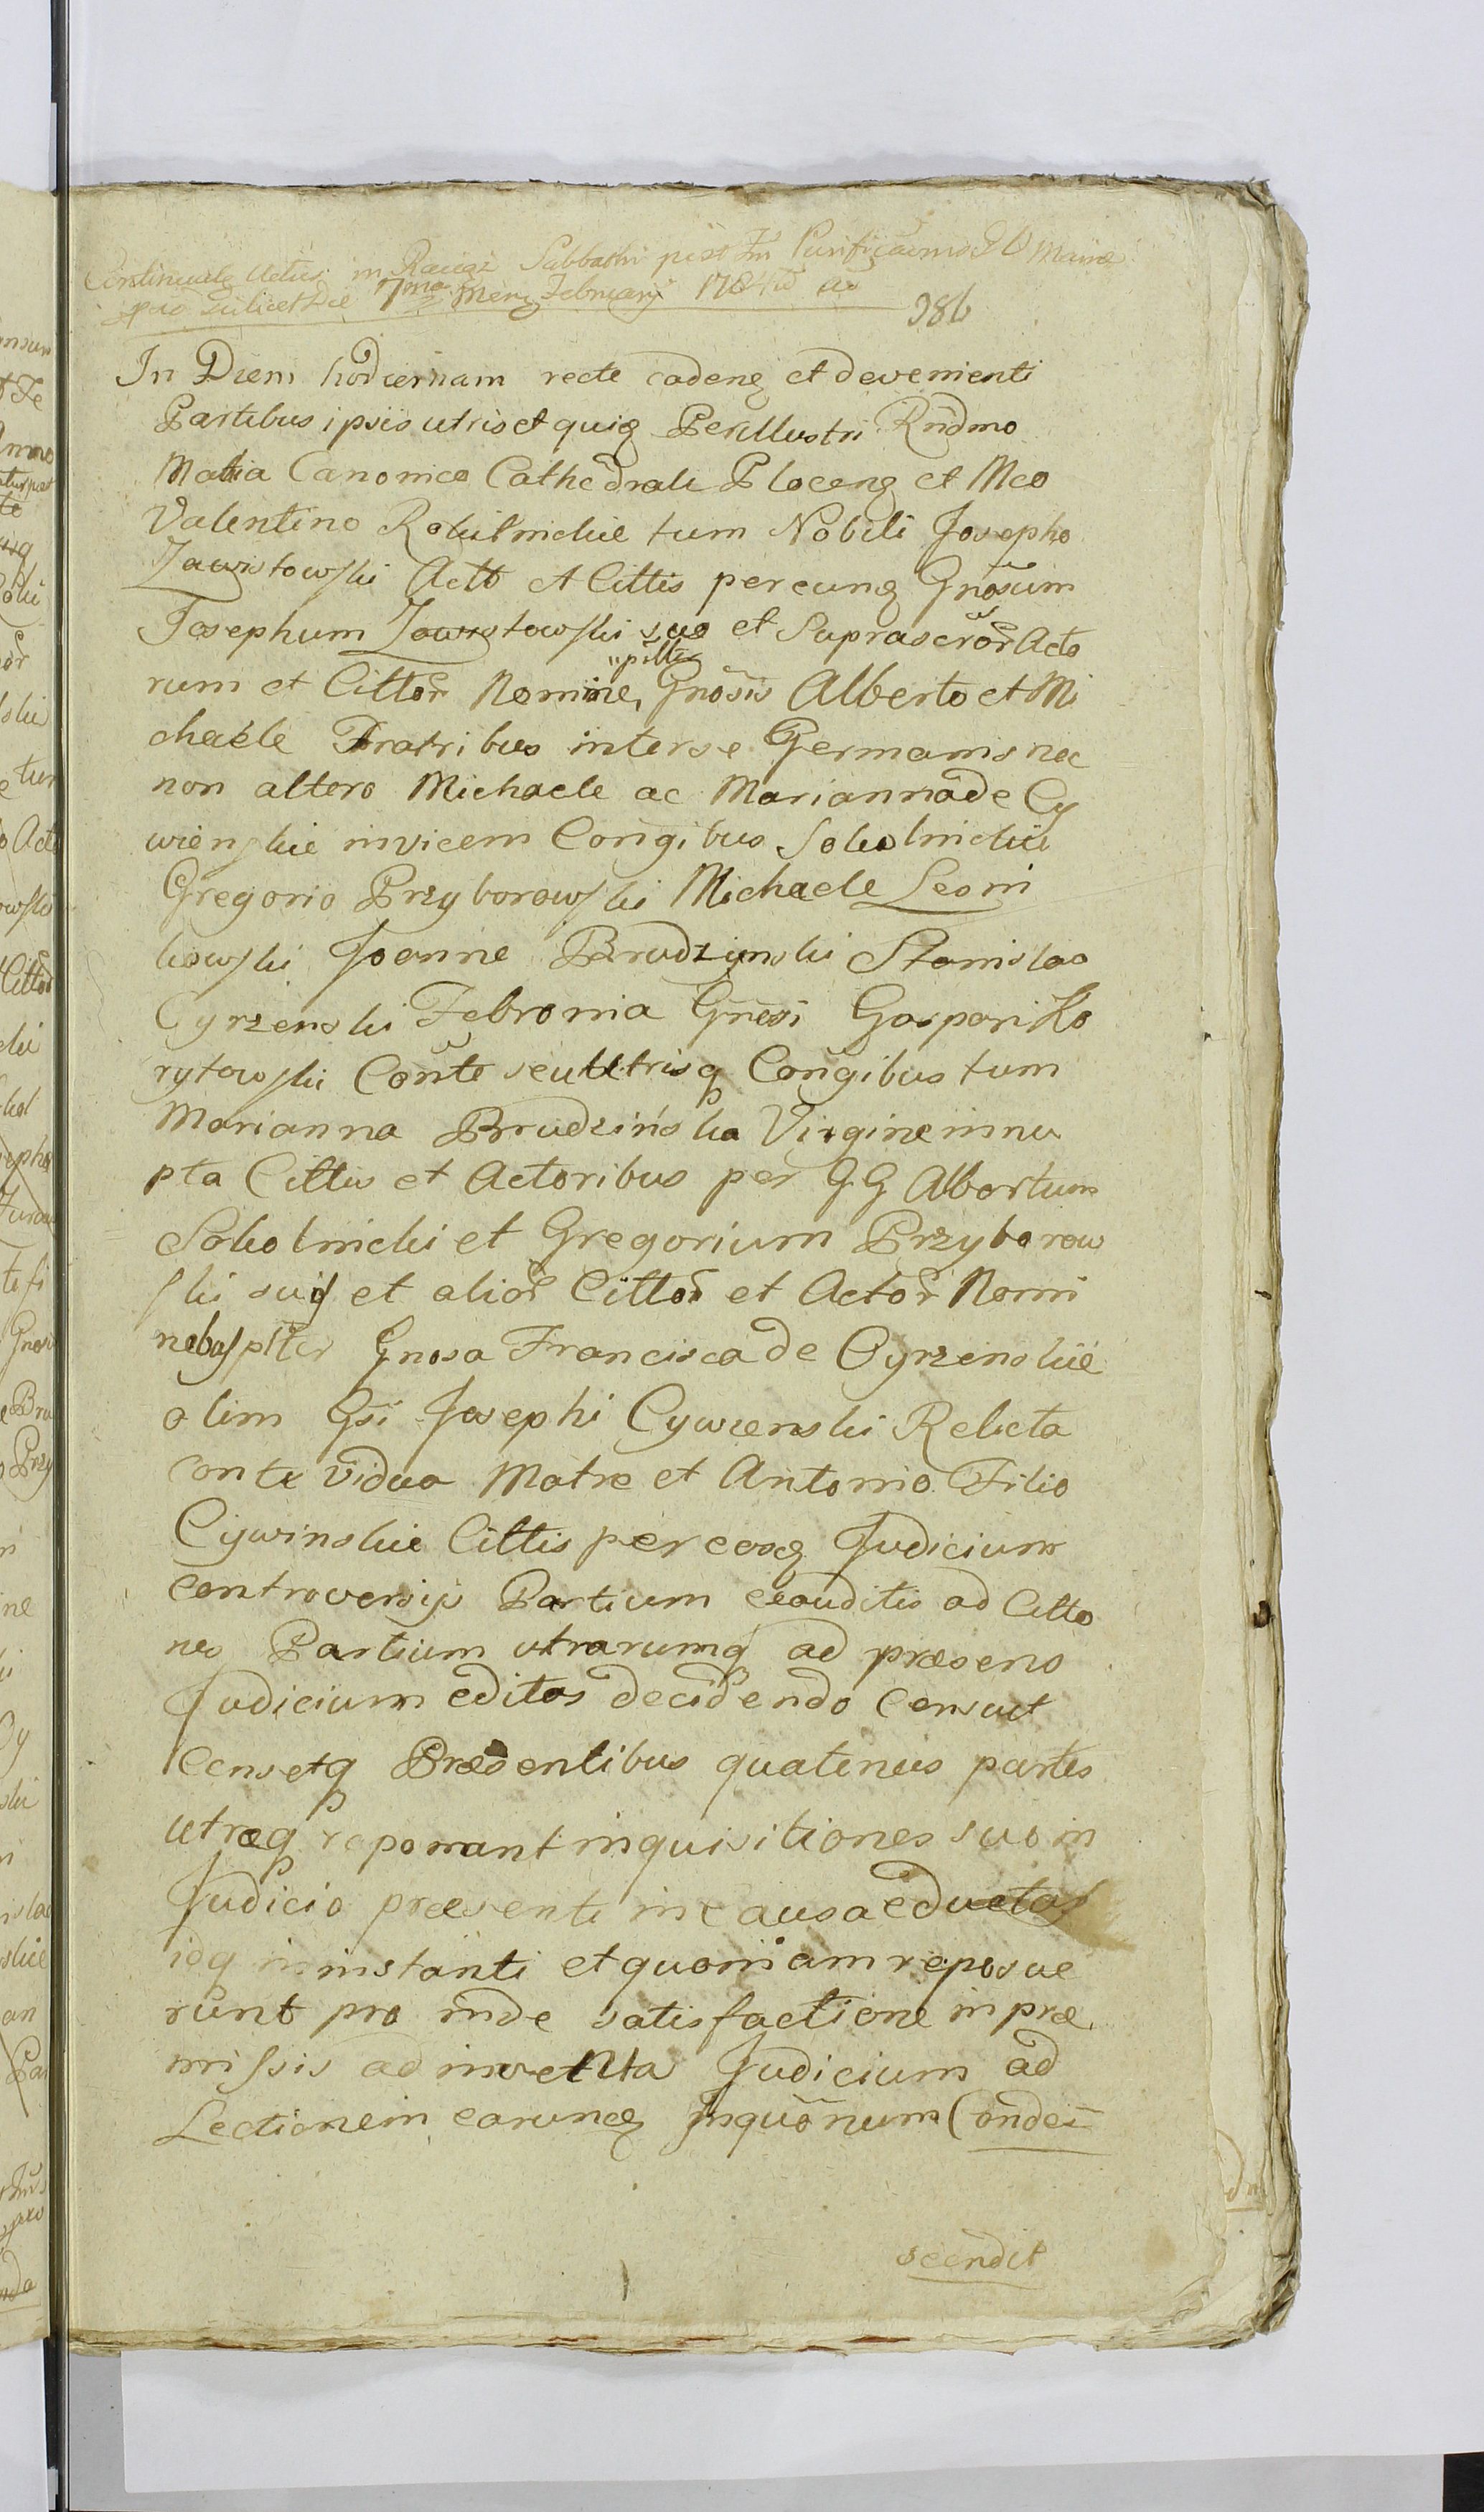 Continuate Actus in Raciąż Sabbatho post Fm Purificaonis B V Mariæ
pro scilicet Die 7ma Mens Februarij 1784to ao
986
In Diem hodiernam recte cadenq et devenienti
Partibus ipsis utris et quiq Perillustri Rndmo
Mathia Canonico Cathedrali Plocenq et Mco
Valentino Rokitnickie tum Nobili Josepho
Zawistowski Actb et Cittis per eunq Gnosum
Josephum Zawistowski suo et Suprascror Acto
pltter
rum et Cittor Nomine, Gnosis Alberto et Mi
chaele Fratribus inter se Germanis nec
non altero Michaele ac Marianna de Cy
wienskie invicem Congibus Sokolnickie
Gregorio Przyborowski Michaele Leoni
kowski Joanne Brudzynski Stanislao
Cyrzenski Febronia Gnesi Gaspari Ko
rytowski Conte seu Utrisq Congibus tum
Marianna Brudzińska Virgine innu
pta Cittis et Actoribus per GG Albertum
Sokolnicki et Gregorium Przyborow
ski suis et alior Cittor et Actor Nomi
nebus plter Gnosa Francisca de Cyrzenskie
olim Gsi Josephi Cywienski Relicta
conte vidua Matre et Antonio Filio
Cijwinskie Cittis per eosq Judicium
controversijs Partium exauditis ad Citto
nes Partium utrarumq ad præsens
Judicium editas decidendo Censuit
Censetq Præsentibus quatenus partes
utræq reponant inquisitiones suo in
Judicio præsenti in Causa eductas
idq in instanti et quoniam reposue
runt pro inde satisfactione in præ
missis ad inventa Judicium ad
Lectionem earunq Inquonum Conde=
scendit